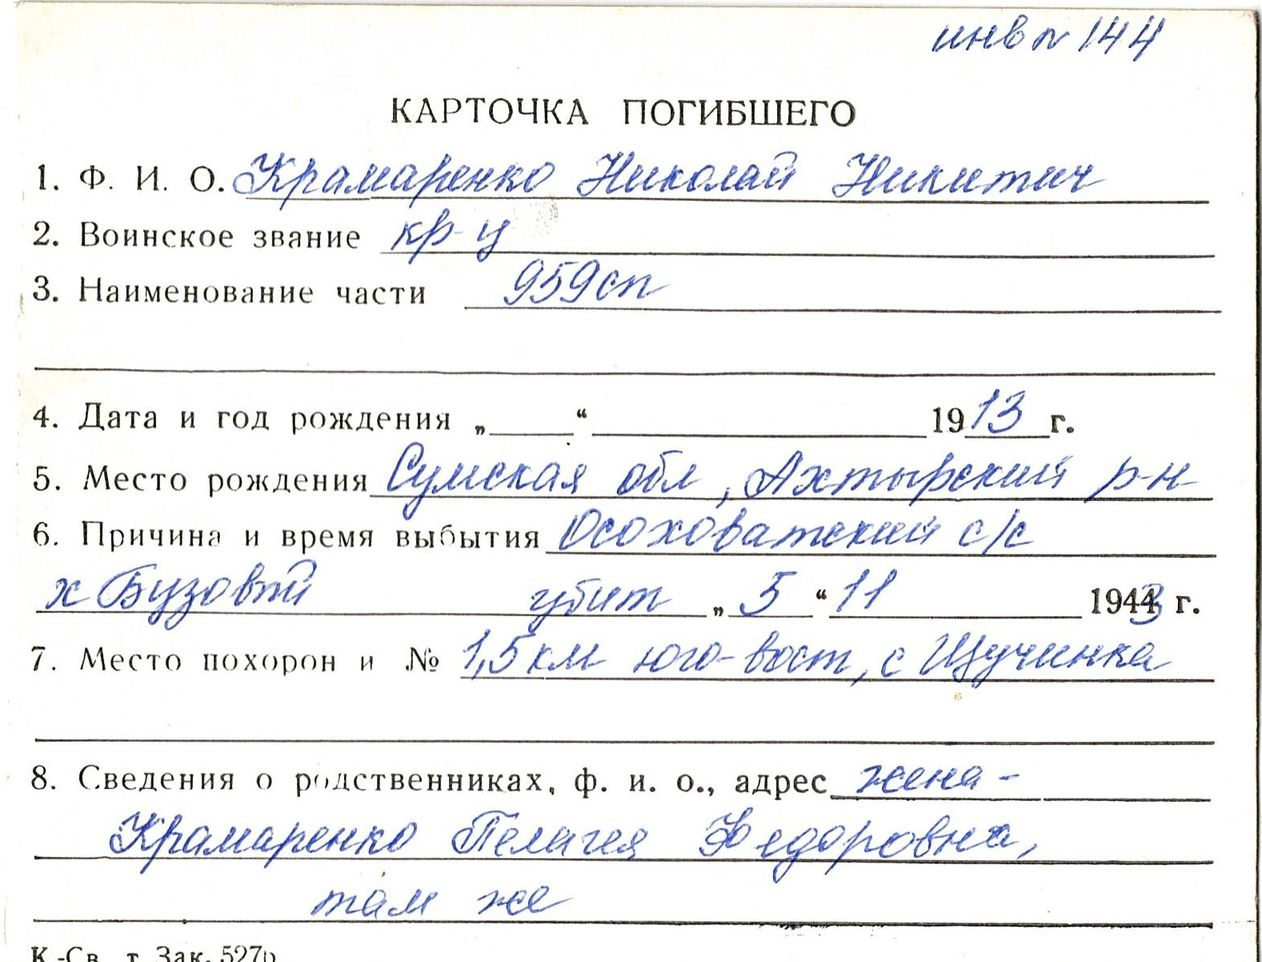 инв № 144
КАРТОЧКА ПОГИБШЕГО
1. Ф. И. О. Крамаренко Николай Никитич
2. Воинское звание кр-ц
3. Наименование части 959сп
4. Дата и год рождения „ “ 1913 г.
5. Место рождения Сумская обл, Ахтырский р-н
6. Причина и время выбытия Осоховатский с/с
х Бузовой убит „ 5 “ 11 1943 г.
7. Место похорон и № 1,5 км юго-вост, с Щучинка
8. Сведения о родственниках, ф. и. о., адрес жена -
Крамаренко Пелагея Федоровна,
там же
К.-Св. т. Зак. 527р